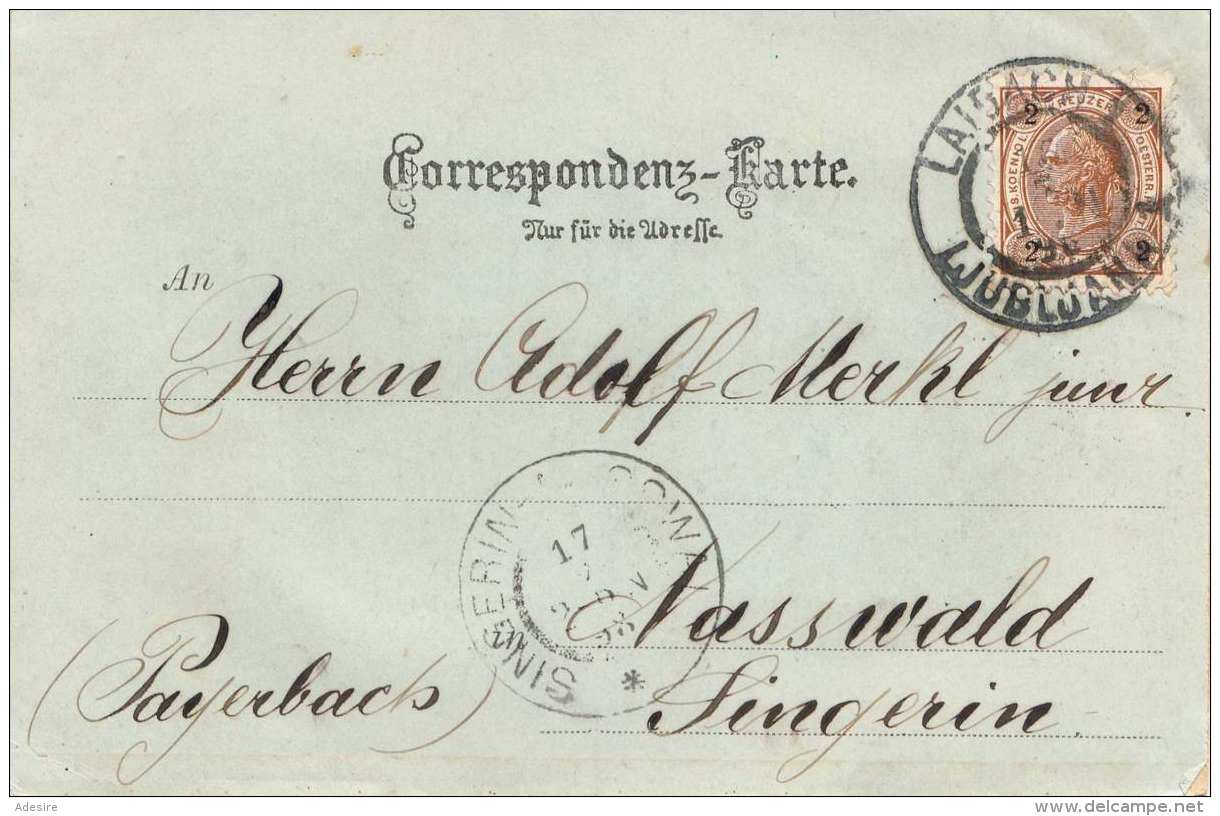 Correspondenz-Karte.
Nur für die Adresse.
LAIBACH
LJUBLJANA
2 KREUZER 2
2 2
An
Herrn Adolf Merkl junr
SINGERIN
17
Nasswald
in
Singerin
(Payerbach)
Adesire
www.delcampe.net